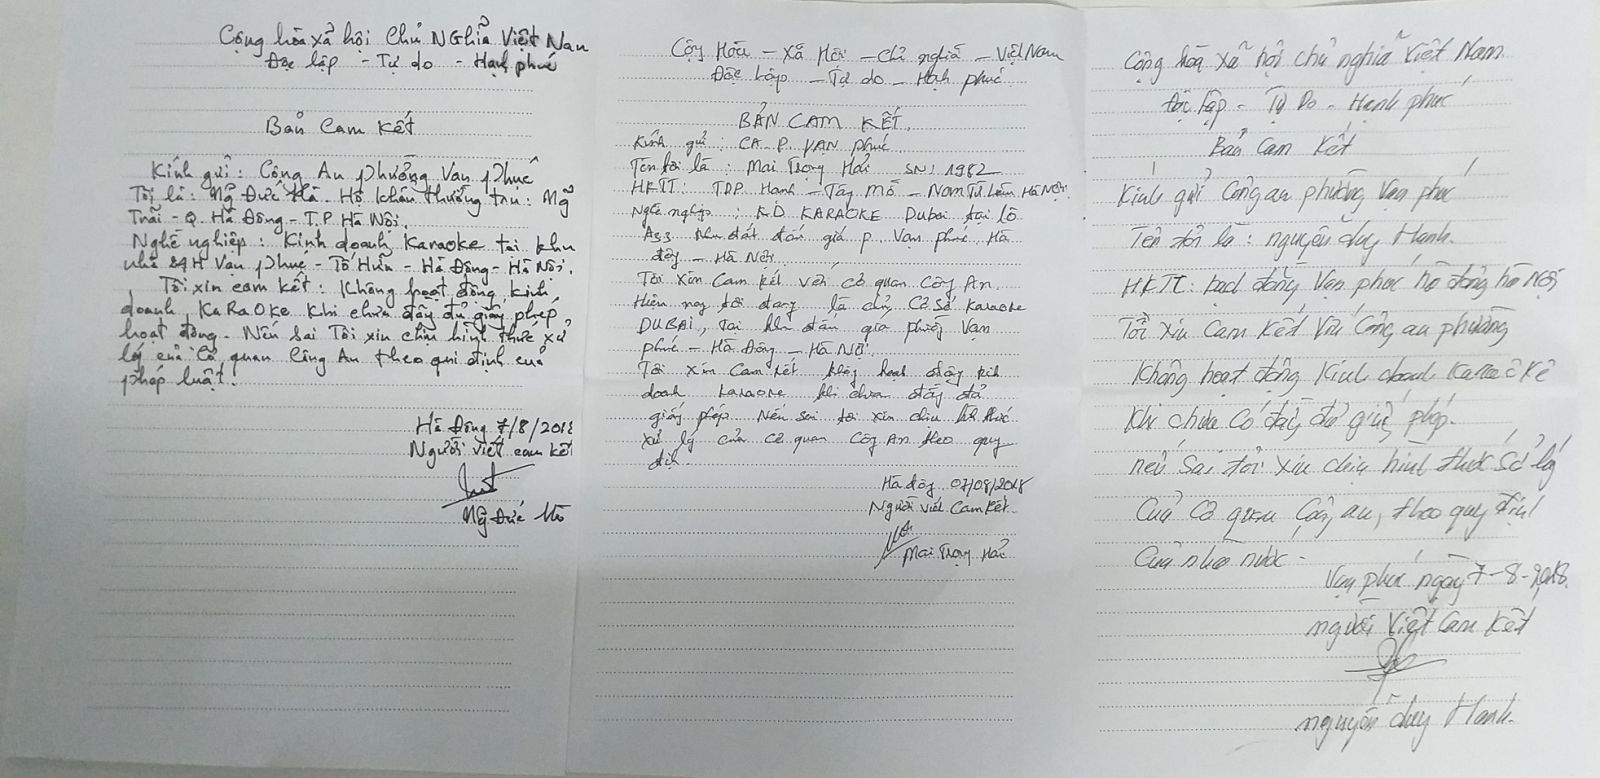 Cộng hòa xã hội Chủ Nghĩa Việt Nam
Độc lập - Tự do - Hạnh phúc
Bản Cam kết
Kính gửi: Công An phường Vạn phúc
Tôi là: Ng̃ Đức Hà. Hộ khẩu thường trú: Ng̃
Trãi - Q. Hà Đông - T.P Hà Nội.
Nghề nghiệp: Kinh doanh Karaoke tại khu
nhà 24H Vạn phúc - Tố Hữu - Hà Đông - Hà Nội.
Tôi xin cam kết: Không hoạt động kinh
doanh KaRaOke khi chưa đầy đủ giấy phép
hoạt động. Nếu sai Tôi xin chịu hình thức xử
lý của Cơ quan Công An theo qui định của
pháp luật.
Hà Đông 7/8/2018
Người viết cam kết
Ng̃ Đức
Cộng Hòa - Xã Hội - Chủ nghĩa - Việt Nam
Độc lập - Tự do - Hạnh phúc
BẢN CAM KẾT.
Kính gửi: CA. P. VẠN phúc
Tên tôi là: Mai Trọng Hải SN: 1982
HKTT: TDP. Hạnh - Tây Mỗ - Nam Từ Liêm Hà Nội.
Nghề nghiệp: KD KARAOKE Dubai tại lô
A33 khu đất đấu giá p. Vạn phúc, Hà
đông - Hà Nội.
Tôi xin Cam kết với cơ quan Công An.
Hiện nay tôi đang là chủ Cơ sở karaoke
DUBAI, tại khu đấu giá phường Vạn
phúc - Hà Đông - Hà Nội.
Tôi xin Cam kết không hoạt động kinh
doanh karaoke khi chưa đầy đủ
giấy phép. Nếu sai tôi xin chịu hình thức
xử lý của cơ quan Công An theo quy
định.
Hà đông 07/08/2018
Người viết Cam kết.
Mai Trọng Hải
Cộng hòa xã hội chủ nghĩa Việt Nam.
Độc lập - Tự Do - Hạnh phúc
Bản Cam kết
Kính gửi Công an phường Vạn phúc
Tên tôi là: nguyễn duy Hanh.
HKTT: bạch đằng Vạn phúc hà đông hà Nội
Tôi xin Cam kết Với Công an phường
Không hoạt động Kinh doanh Karaôkê
Khi chưa có đầy đủ giấy phép.
nếu sai tôi xin chịu hình thức sử lý
Của Cơ quan Công an, theo quy định
Của nhà nước -
Vạn phúc ngày 7-8-2018.
người Viết Cam kết
nguyễn duy Hanh.